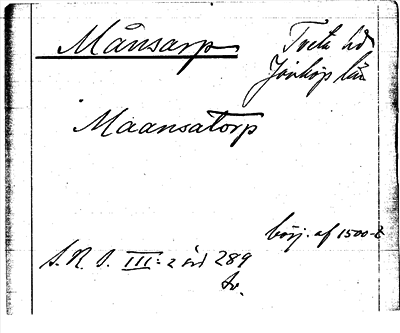 Månsarp Tveta hd
Jönköp län
Maansatorp
börj. af 1500-t
S. R. S. III: 2 sid 289